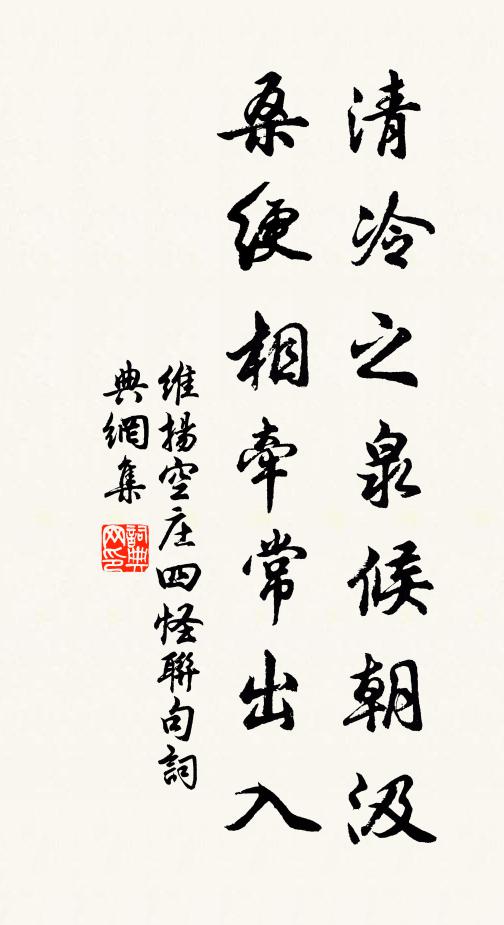 清冷之泉候朝汲
桑綆相牽常出入
維揚空庄四怪聯句詞
典網集
詞典网印